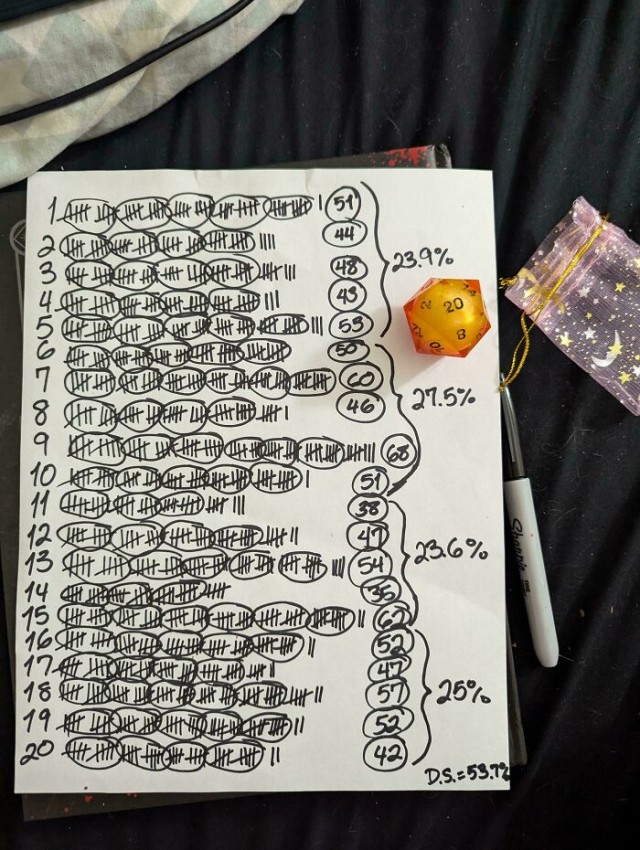 1 51
2 44
3 48 23.9%
4 43
5 53
6 50
7 60
8 46 27.5%
9 68
10 51
11 38
12 47
13 54 23.6%
14 35
15 62
16 52
17 47
18 57 25%
19 52
20 42
D.S.=53.7%
20
2
8
Sharpie